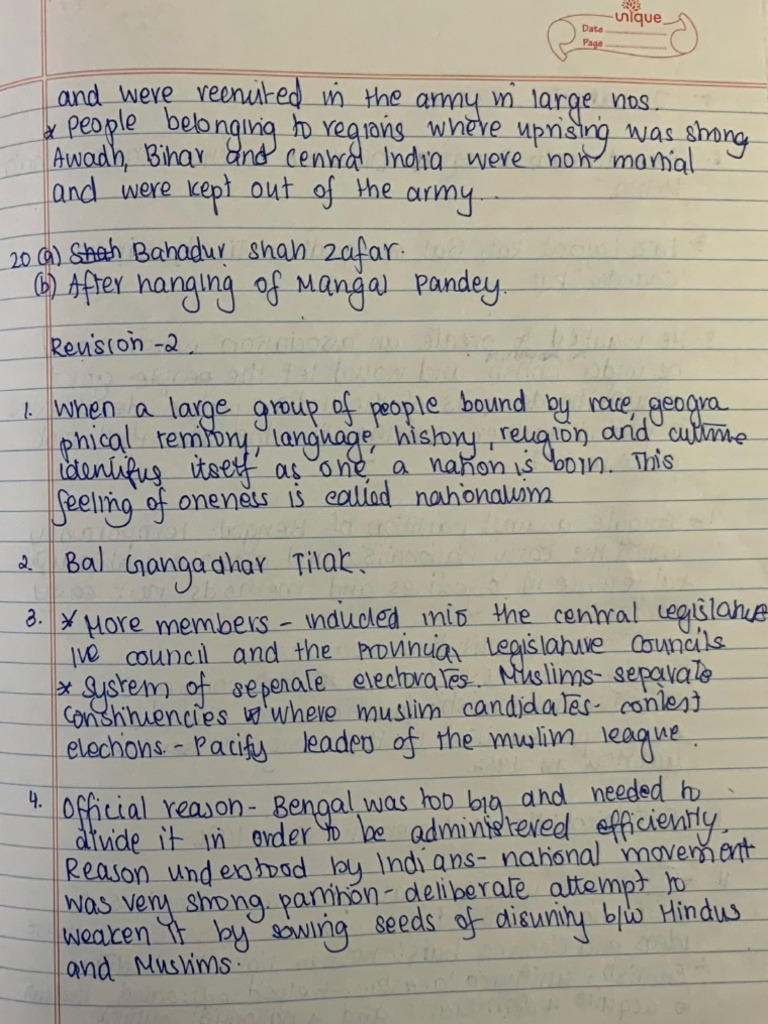 unique
Date
Page
and were recruited in the army in large nos.
* people belonging to regions where uprising was strong
Awadh, Bihar and central India were non martial
and were kept out of the army.
20 (a) Shah Bahadur shah zafar.
(b) After hanging of Mangal Pandey.
Revision -2.
1. When a large group of people bound by race, geogra
phical territory, language, history, religion and culture
identifys itself as one, a nation is born. This
feeling of oneness is called nationalism
2. Bal Gangadhar Tilak.
3. * More members - inducted into the central legislature
ive council and the Provincial Legislature Councils
* System of seperate electorates. Muslims- separate
constituencies where muslim candidates- contest
elections. - Pacify leaders of the muslim league.
4. Official reason - Bengal was too big and needed to
divide it in order to be administered efficiently.
Reason understood by Indians- national movement
was very strong. partition - deliberate attempt to
weaken it by sowing seeds of disunity b/w Hindus
and Muslims.